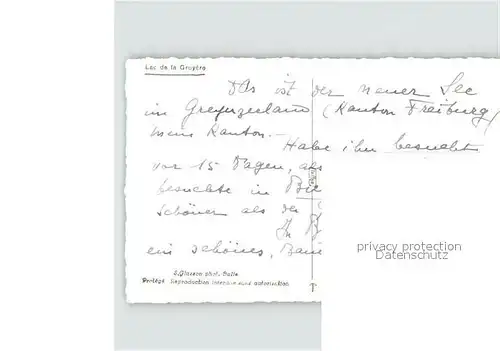 Lac de la Gruyère
Das ist der neuer See
im Greyerzerland (Kanton Freiburg)
mein Kanton.-
Habe ihn besucht
vor 15 Tagen, als
besuchte in
schöner als der
In
ein schönes,
S.Glasson phot. Bulle
Protégé Reproduction interdite sans autorisation
privacy protection
Datenschutz